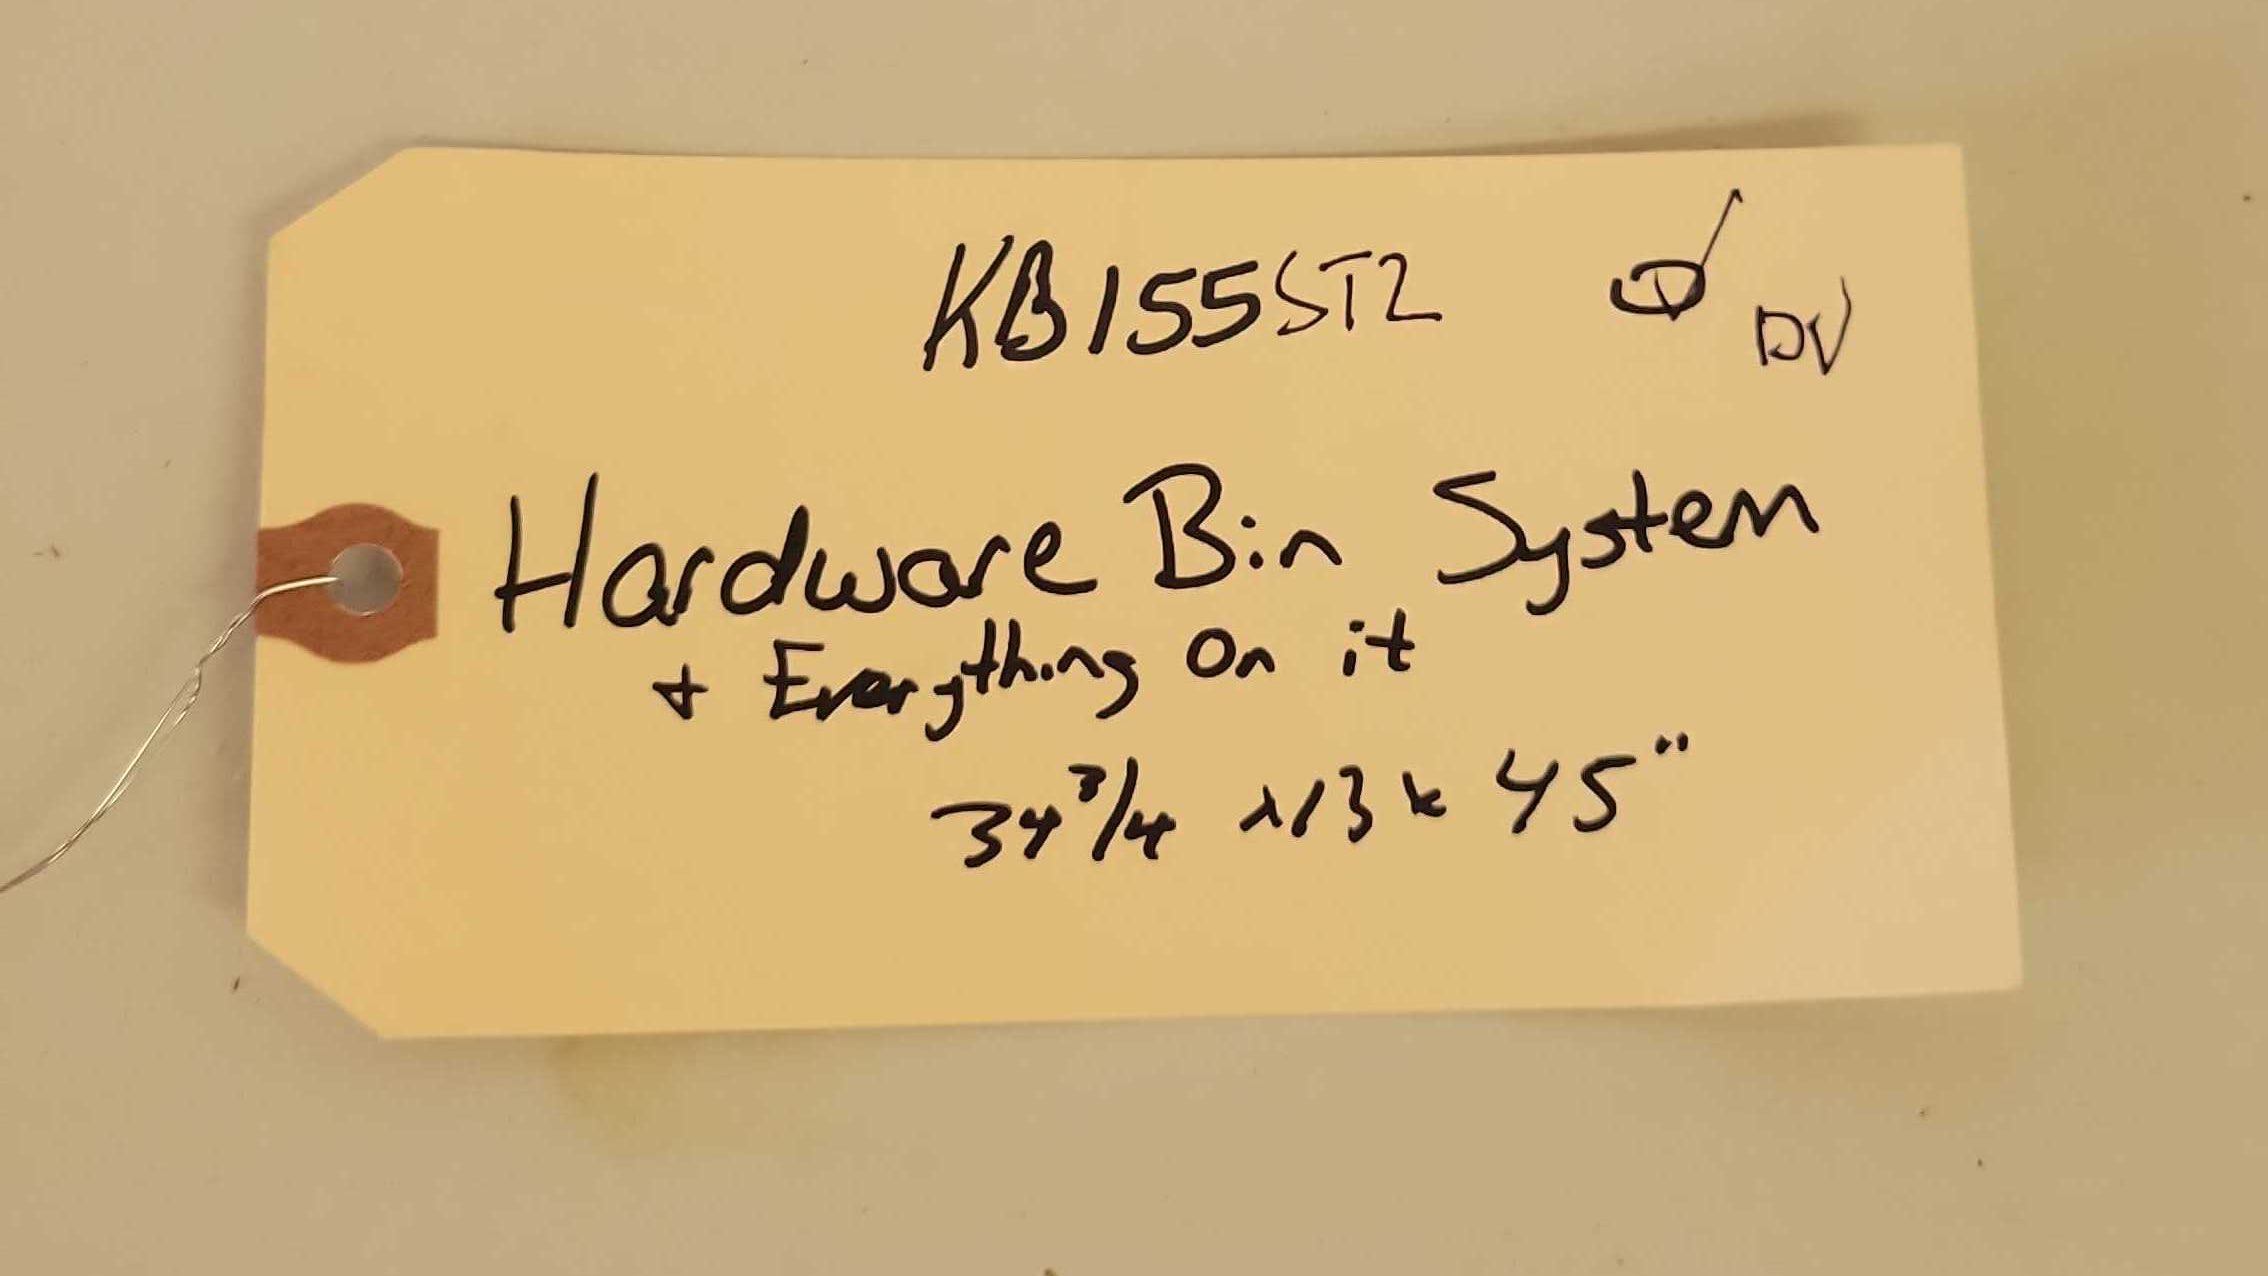 KB155ST2
DV
Hardware Bin System
+ Everything On it
34 3/4 x13 x 45"